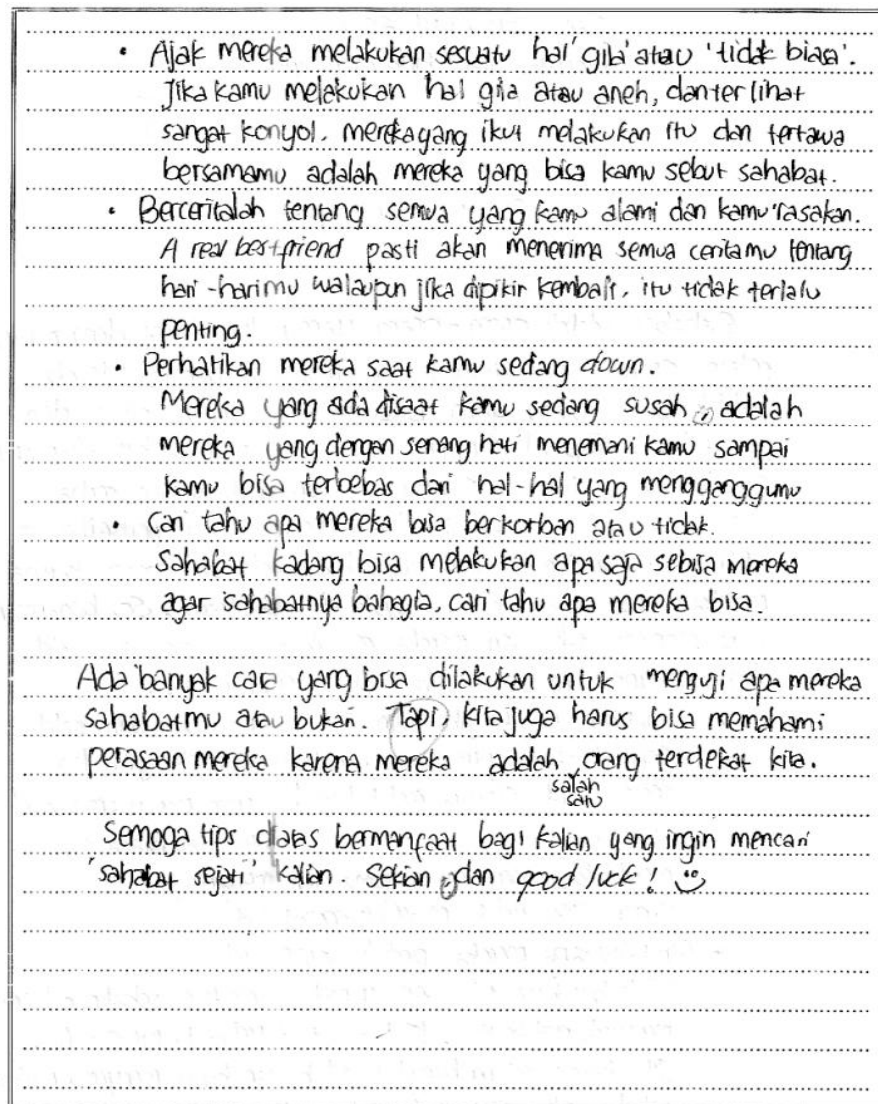 • Ajak mereka melakukan sesuatu hal 'gila' atau 'tidak biasa'.
Jika kamu melakukan hal gila atau aneh, dan terlihat
sangat konyol, mereka yang ikut melakukan itu dan tertawa
bersamamu adalah mereka yang bisa kamu sebut sahabat.
• Berceritalah tentang semua yang kamu alami dan kamu rasakan.
A real bestfriend pasti akan menerima semua ceritamu tentang
hari-harimu walaupun jika dipikir kembali, itu tidak terlalu
penting.
• Perhatikan mereka saat kamu sedang down.
Mereka yang ada disaat kamu sedang susah adalah
mereka yang dengan senang hati menemani kamu sampai
kamu bisa terbebas dari hal-hal yang mengganggumu
• Cari tahu apa mereka bisa berkorban atau tidak.
Sahabat kadang bisa melakukan apa saja sebisa mereka
agar sahabatnya bahagia, cari tahu apa mereka bisa.
Ada banyak cara yang bisa dilakukan untuk menguji apa mereka
sahabatmu atau bukan. Tapi, kita juga harus bisa memahami
perasaan mereka karena mereka adalah orang terdekat kita.
salah
satu
Semoga tips diatas bermanfaat bagi kalian yang ingin mencari
'sahabat sejati' kalian. Sekian dan good luck!